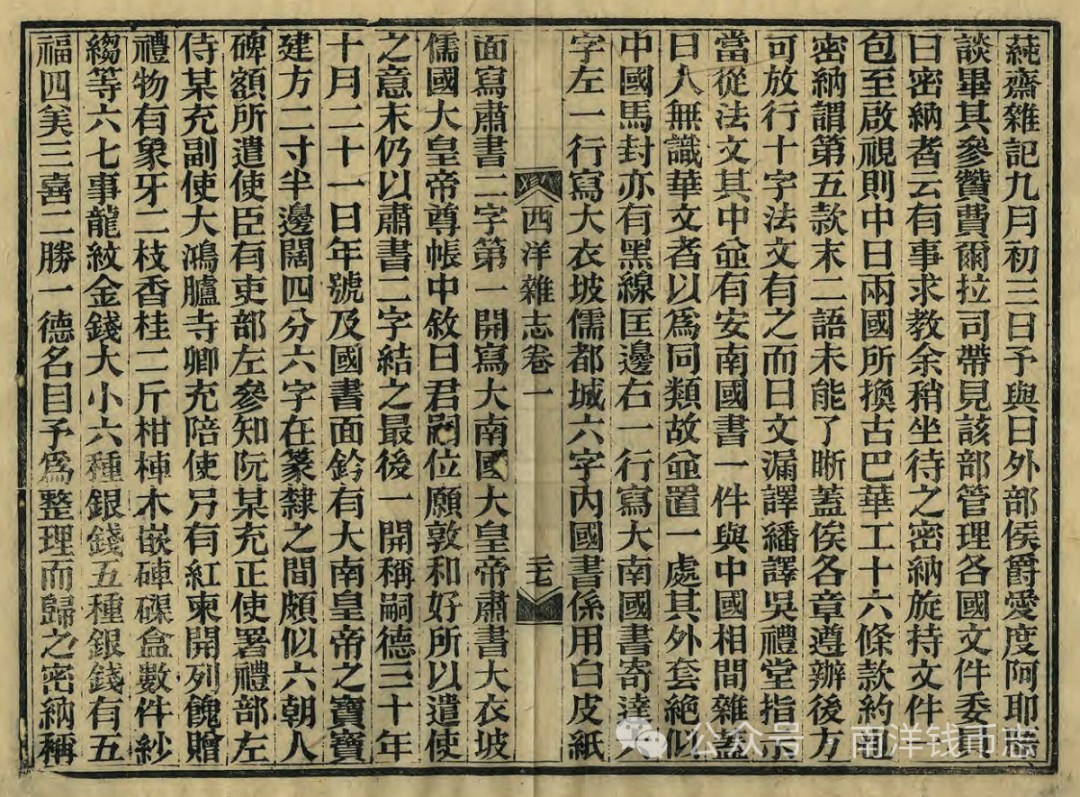 蒓齋雜記九月初三日予與日外部侯爵愛度阿耶
談畢其參贊費爾拉司帶見該部管理各國文件委員
曰密納者云有事求教余稍坐待之密納旋持文件
包至啟視則中日兩國所換古巴華工十六條款約也
密納謂第五款末二語未能了晰蓋俟各章遵辦後方
可放行十字法文有之而日文漏譯繙譯吳禮堂指示
當從法文其中並有安南國書一件與中國相間雜蓋
日人無識華文者以為同類故並置一處其外套絕似
中國馬封亦有黑線匡邊右一行寫大南國書寄達
字左一行寫大衣坡儒都城六字內國書係用白皮紙
西洋雜志卷一
面寫肅書二字第一開寫大南國大皇帝肅書大衣坡
儒國大皇帝尊帳中敘曰君嗣位願敦和好所以遣使
之意末仍以肅書二字結之最後一開稱嗣德三十年
十月二十一日年號及國書面鈐有大南皇帝之寶寶
建方二寸半邊闊四分六字在篆隸之間頗似六朝人
碑額所遣使臣有吏部左參知阮某充正使署禮部左
侍某充副使大鴻臚寺卿充陪使另有紅柬開列餽贈
禮物有象牙二枝香桂二斤柑棟木嵌硨磲盒數件紗
縐等六七事龍紋金錢大小六種銀錢五種銀錢有五
福四美三喜二勝一德名目予為整理而歸之密納稱
公众号 南洋钱币志